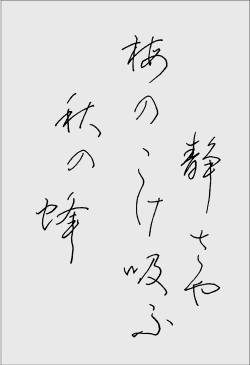 静さや
梅のこけ吸ふ
秋の蜂